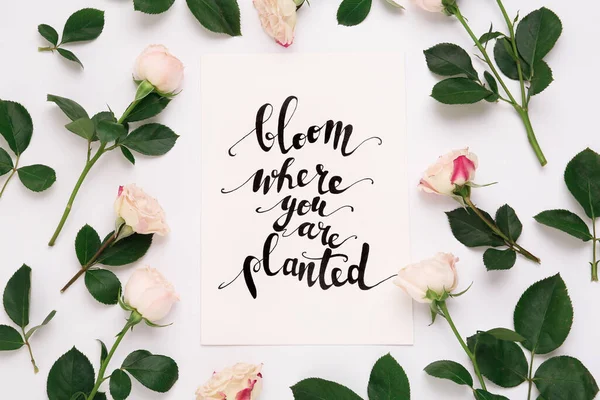 bloom
where
you
are
planted